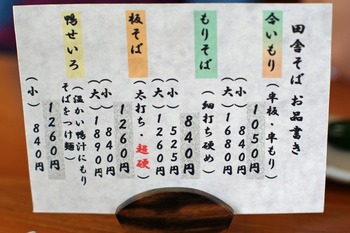 田舎そば お品書き
合いもり (半板・半もり)
1050円
(大) 1680円
もりそば (細打ち硬め)
840円
(小) 525円
(大) 1260円
板そば (太打ち・超硬)
1260円
(小) 840円
(大) 1890円
鴨せいろ (温かい鴨汁にもり
そばをつけ麺)
1260円
(小) 840円